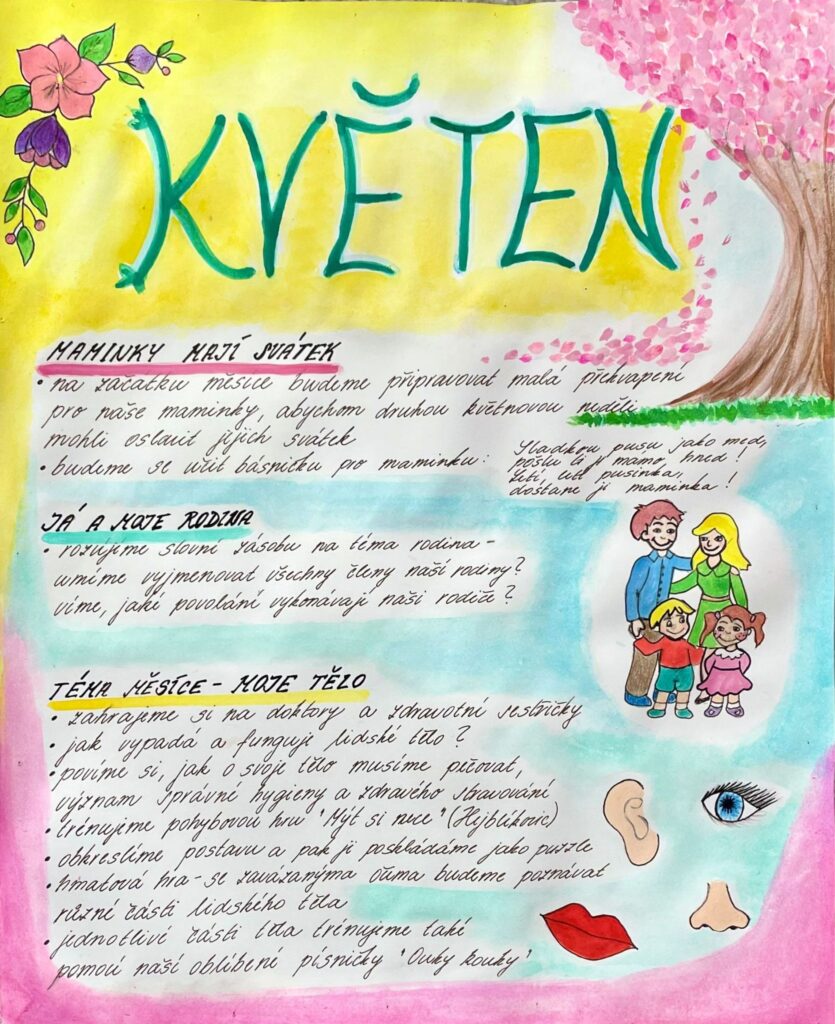 KVĚTEN
MAMINKY MAJÍ SVÁTEK
• na začátku měsíce budeme připravovat malá překvapení
pro naše maminky, abychom druhou květnovou neděli
mohli oslavit jejich svátek
• budeme se učit básničku pro maminku:
Sladkou pusu jako med,
pošlu ti ji mamo, hned!
Letí, letí pusinka,
dostane ji maminka!
JÁ A MOJE RODINA
• rozvíjíme slovní zásobu na téma rodina -
umíme vyjmenovat všechny členy naší rodiny?
víme, jaké povolání vykonávají naši rodiče?
TÉMA MĚSÍCE - MOJE TĚLO
• zahrajeme si na doktory a zdravotní sestřičky
• jak vypadá a funguje lidské tělo?
• povíme si, jak o svoje tělo musíme pečovat,
význam správné hygieny a zdravého stravování
• trénujeme pohybovou hru "Mýt si ruce" (Hejblíkovic)
• obkreslíme postavu a pak ji poskládáme jako puzzle
• hmatová hra - se zavázanýma očima budeme poznávat
různé části lidského těla
• jednotlivé části těla trénujeme také
pomocí naší oblíbené písničky "Ouky kouky"